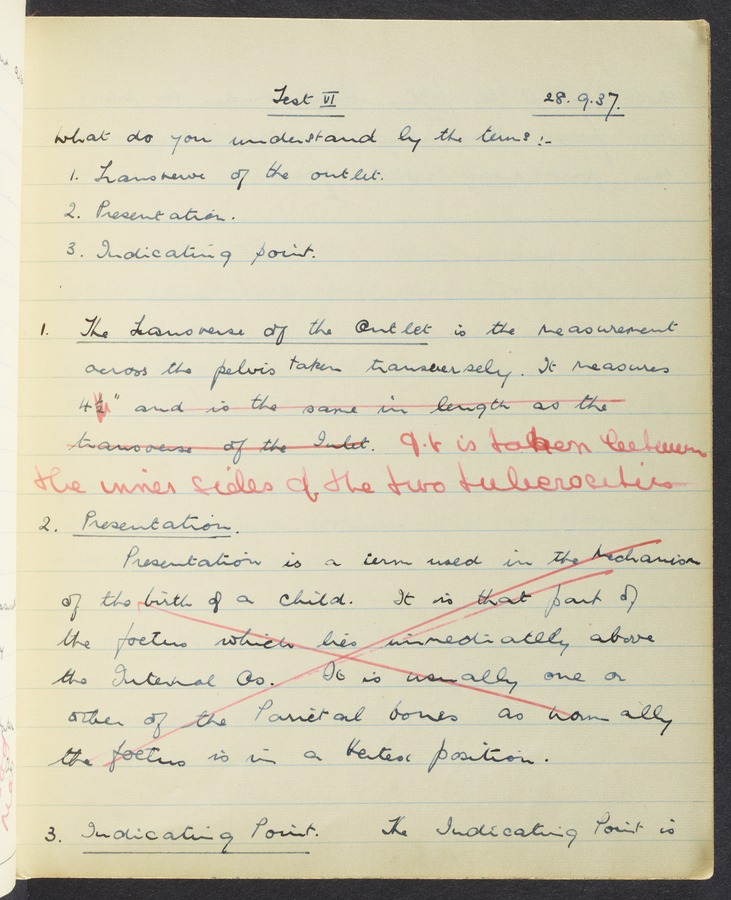 Test VI 28.9.37.
What do you understand by the terms :-
1. Transverse of the outlet.
2. Presentation.
3. Indicating point.
1. The Transverse of the Outlet is the measurement
across the pelvis taken transversely. It measures
4½" and is the same in length as the
transverse of the Inlet. It is taken between
the inner sides of the two tuberosities
2. Presentation.
Presentation is a term used in the Mechanism
of the birth of a child. It is that part of
the foetus which lies immediatelly above
the Internal Os. It is usually one or
other of the Parietal bones as normally
the foetus is in a Vertex position.
3. Indicating Point. The Indicating Point is